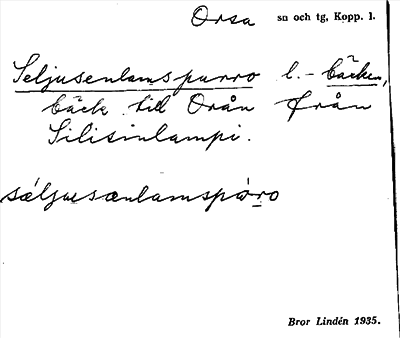 Orsa sn och tg, Kopp. l.
Seljusenlamspurro l. - bäcken,
bäck till Orån från
Silisinlampi.
sǽljusænlamspùro
Bror Lindén 1935.